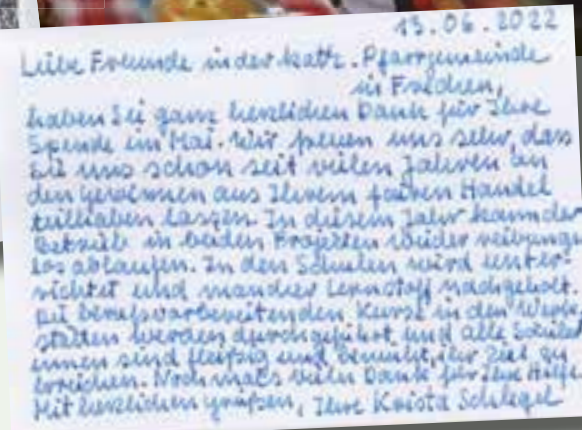 13.06.2022
Liebe Freunde in der kath. Pfarrgemeinde
in Frechen,
haben Sie ganz herzlichen Dank für Ihre
Spende im Mai. Wir freuen uns sehr, dass
Sie uns schon seit vielen Jahren an
den Gewinnen aus Ihrem fairen Handel
teilhaben lassen. In diesem Jahr kann der
Betrieb in beiden Projekten wieder reibungs-
los ablaufen. In den Schulen wird unter-
richtet und mancher Lernstoff nachgeholt.
Die berufsvorbereitenden Kurse in den Werk-
stätten werden durchgeführt und alle Schüler
innen sind fleißig und bemüht, ihr Ziel zu
erreichen. Nochmals vielen Dank für Ihre Hilfe.
Mit herzlichen Grüßen, Ihre Krista Schlegel